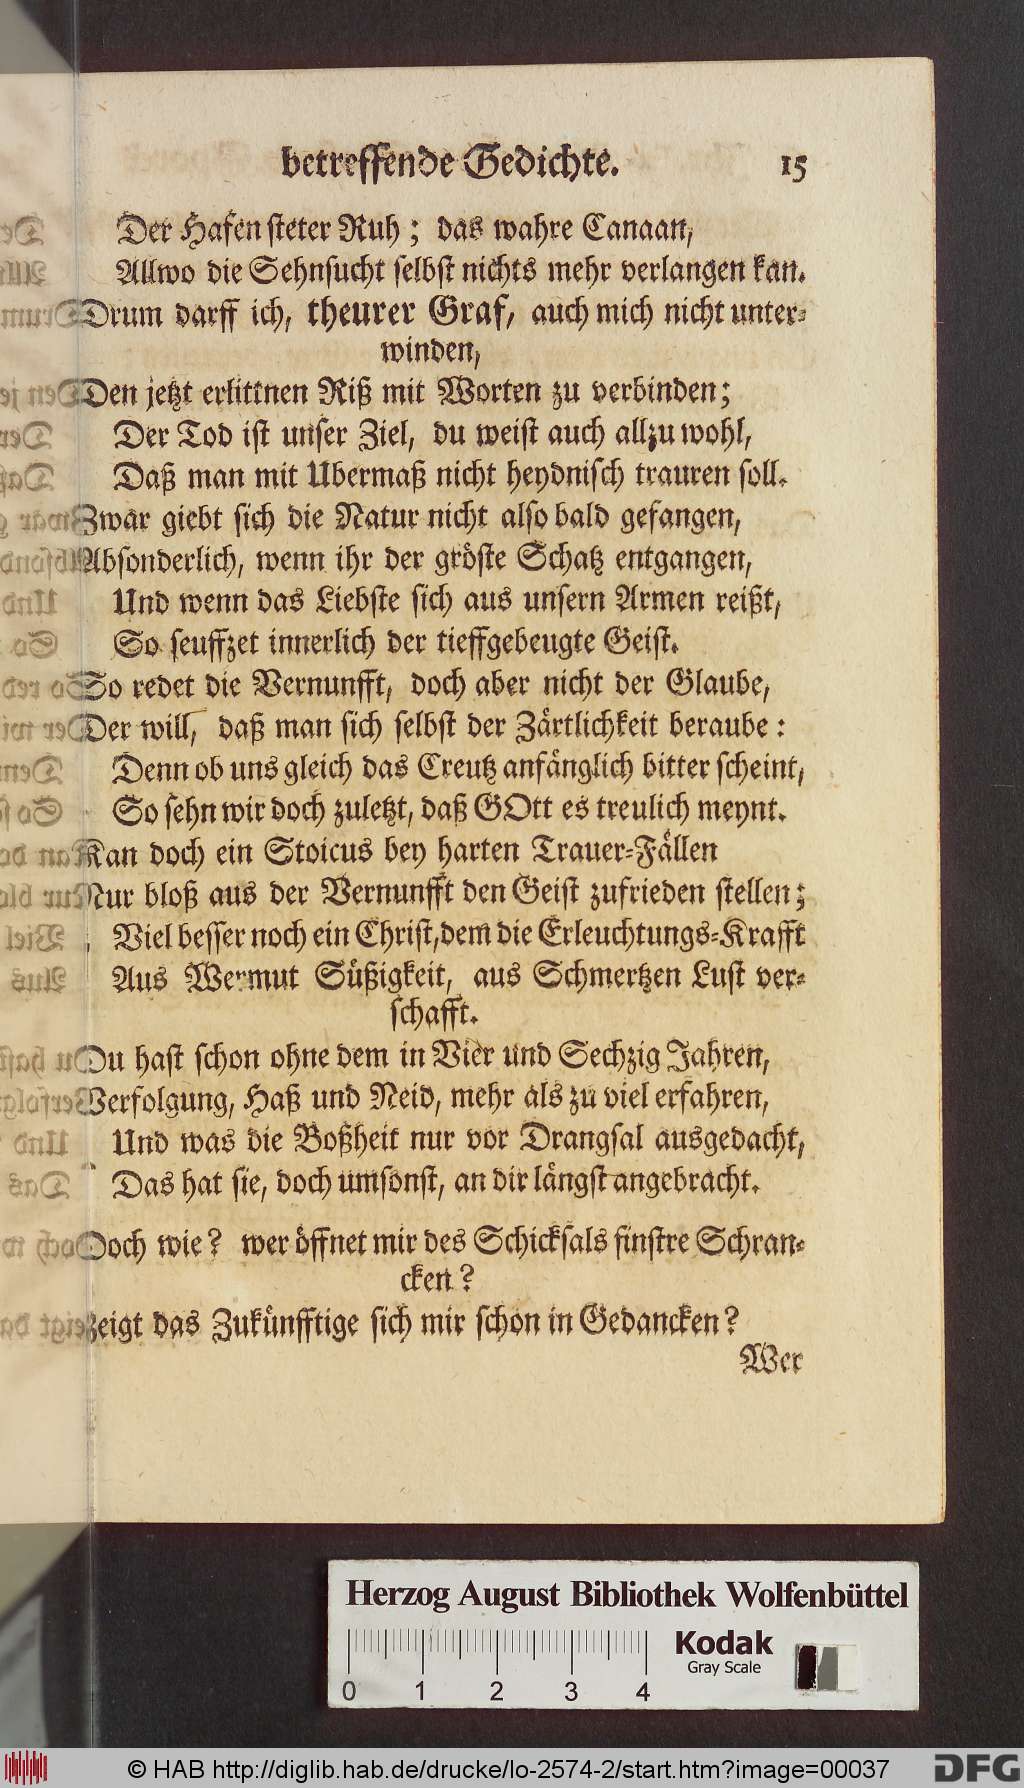 betreffende Gedichte. 15
Der Hafen steter Ruh; das wahre Canaan,
Allwo die Sehnsucht selbst nichts mehr verlangen kan.
Drum darff ich, theurer Graf, auch mich nicht unter-
winden,
Den jetzt erlittnen Riß mit Worten zu verbinden;
Der Tod ist unser Ziel, du weist auch allzu wohl,
Daß man mit Ubermaß nicht heydnisch trauren soll.
Zwar giebt sich die Natur nicht also bald gefangen,
Absonderlich, wenn ihr der gröste Schatz entgangen,
Und wenn das Liebste sich aus unsern Armen reißt,
So seuffzet innerlich der tieffgebeugte Geist.
So redet die Vernunfft, doch aber nicht der Glaube,
Der will, daß man sich selbst der Zärtlichkeit beraube:
Denn ob uns gleich das Creutz anfänglich bitter scheint,
So sehn wir doch zuletzt, daß GOtt es treulich meynt.
Kan doch ein Stoicus bey harten Trauer-Fällen
Nur bloß aus der Vernunfft den Geist zufrieden stellen;
Viel besser noch ein Christ, dem die Erleuchtungs-Krafft
Aus Wermut Süßigkeit, aus Schmertzen Lust ver-
schafft.
Du hast schon ohne dem in Vier und Sechzig Jahren,
Verfolgung, Haß und Neid, mehr als zu viel erfahren,
Und was die Boßheit nur vor Drangsal ausgedacht,
Das hat sie, doch umsonst, an dir längst angebracht.
Doch wie? wer öffnet mir des Schicksals finstre Schran-
cken?
Zeigt das Zukünfftige sich mir schon in Gedancken?
Wer
Herzog August Bibliothek Wolfenbüttel
Kodak
Gray Scale
0 1 2 3 4
© HAB http://diglib.hab.de/drucke/lo-2574-2/start.htm?image=00037
DFG